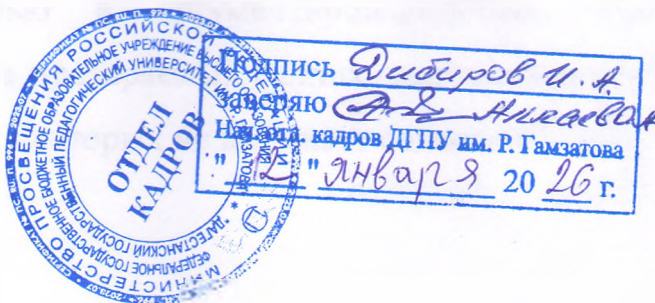 МИНИСТЕРСТВО ПРОСВЕЩЕНИЯ РОССИЙСКОЙ ФЕДЕРАЦИИ
ФЕДЕРАЛЬНОЕ ГОСУДАРСТВЕННОЕ БЮДЖЕТНОЕ ОБРАЗОВАТЕЛЬНОЕ УЧРЕЖДЕНИЕ ВЫСШЕГО ОБРАЗОВАНИЯ
"ДАГЕСТАНСКИЙ ГОСУДАРСТВЕННЫЙ ПЕДАГОГИЧЕСКИЙ УНИВЕРСИТЕТ ИМ. Р. ГАМЗАТОВА"
ОТДЕЛ
КАДРОВ
Подпись Дибиров И. А.
заверяю
Нач. отд. кадров ДГПУ им. Р. Гамзатова
"12" января 20 26 г.